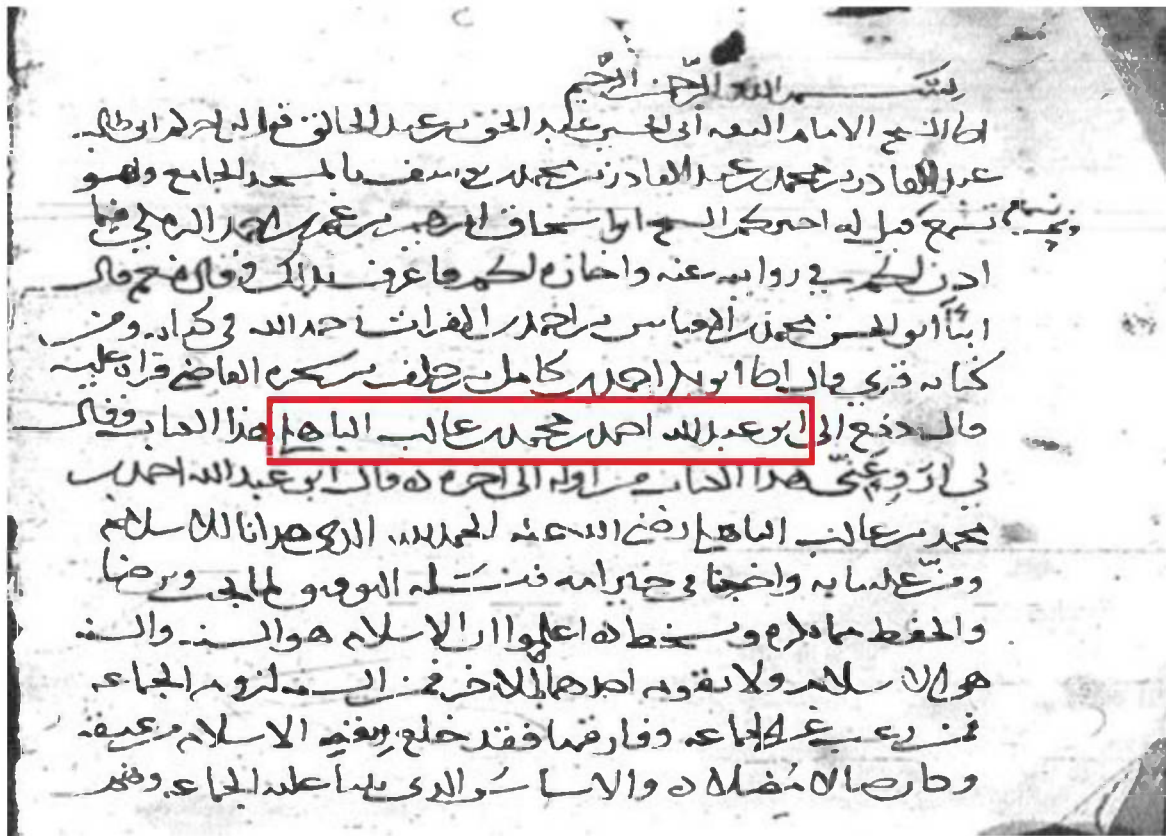 بسم الله الرحمن الرحيم
الشيخ الامام الثقة ابى الحسين عبد الحق بن عبد الخالق قيل له اخبركم ابو طالب
عبد القادر بن محمد بن عبد القادر بن محمد بن يوسف بالمسجد الجامع وهو
تسمع قيل له اخبركم الشيخ ابو اسحاق ابرهيم بن عمر بن احمد البرمكي فيما
اذن لكم في روايته عنه واجازه لكم فاعترف بذلك وقال نعم قال
انبأ ابو الحسن محمد بن العباس بن احمد بن الفرات رحمه الله في كتابه ومن
كتابه قرى قال ابو بكر احمد بن كامل بن خلف بن شجره القاضي قراة عليه
قال دفع الى ابو عبد الله احمد بن محمد بن غالب الباهلي هذا الكتاب وقال
لي ارو عني هذا الكتاب من اوله الى اخره قال ابو عبد الله احمد بن
محمد بن غالب الباهلي رضي الله عنه الحمد لله الذي هدانا للاسلام
ومنّ علينا به واخرجنا في خير امه فنسئله التوفيق لما يحب ويرضا
والحفظ مما يكره ويسخط اعلموا ان الاسلام هو السنه والسنه
هي الاسلام ولا يقوم احدهما الا بالاخر فمن السنه لزوم الجماعه
فمن رغب غير الجماعه وفارقها فقد خلع ربقة الاسلام من عنقه
وكان ضالا مضلا والاساس الذي بينا عليه الجماعه وهم